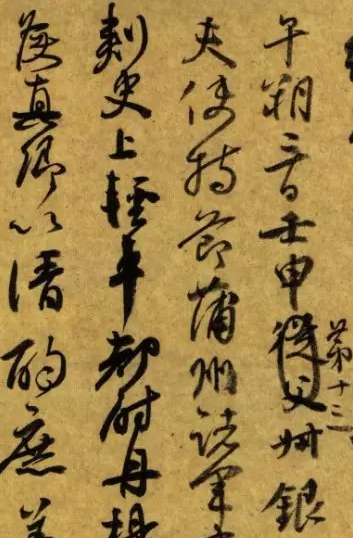 午朔三日壬申從父叔銀
第十三
夫使持節蒲州諸軍
刺史上輕車都尉丹楊
侯真卿以清酌庶羞